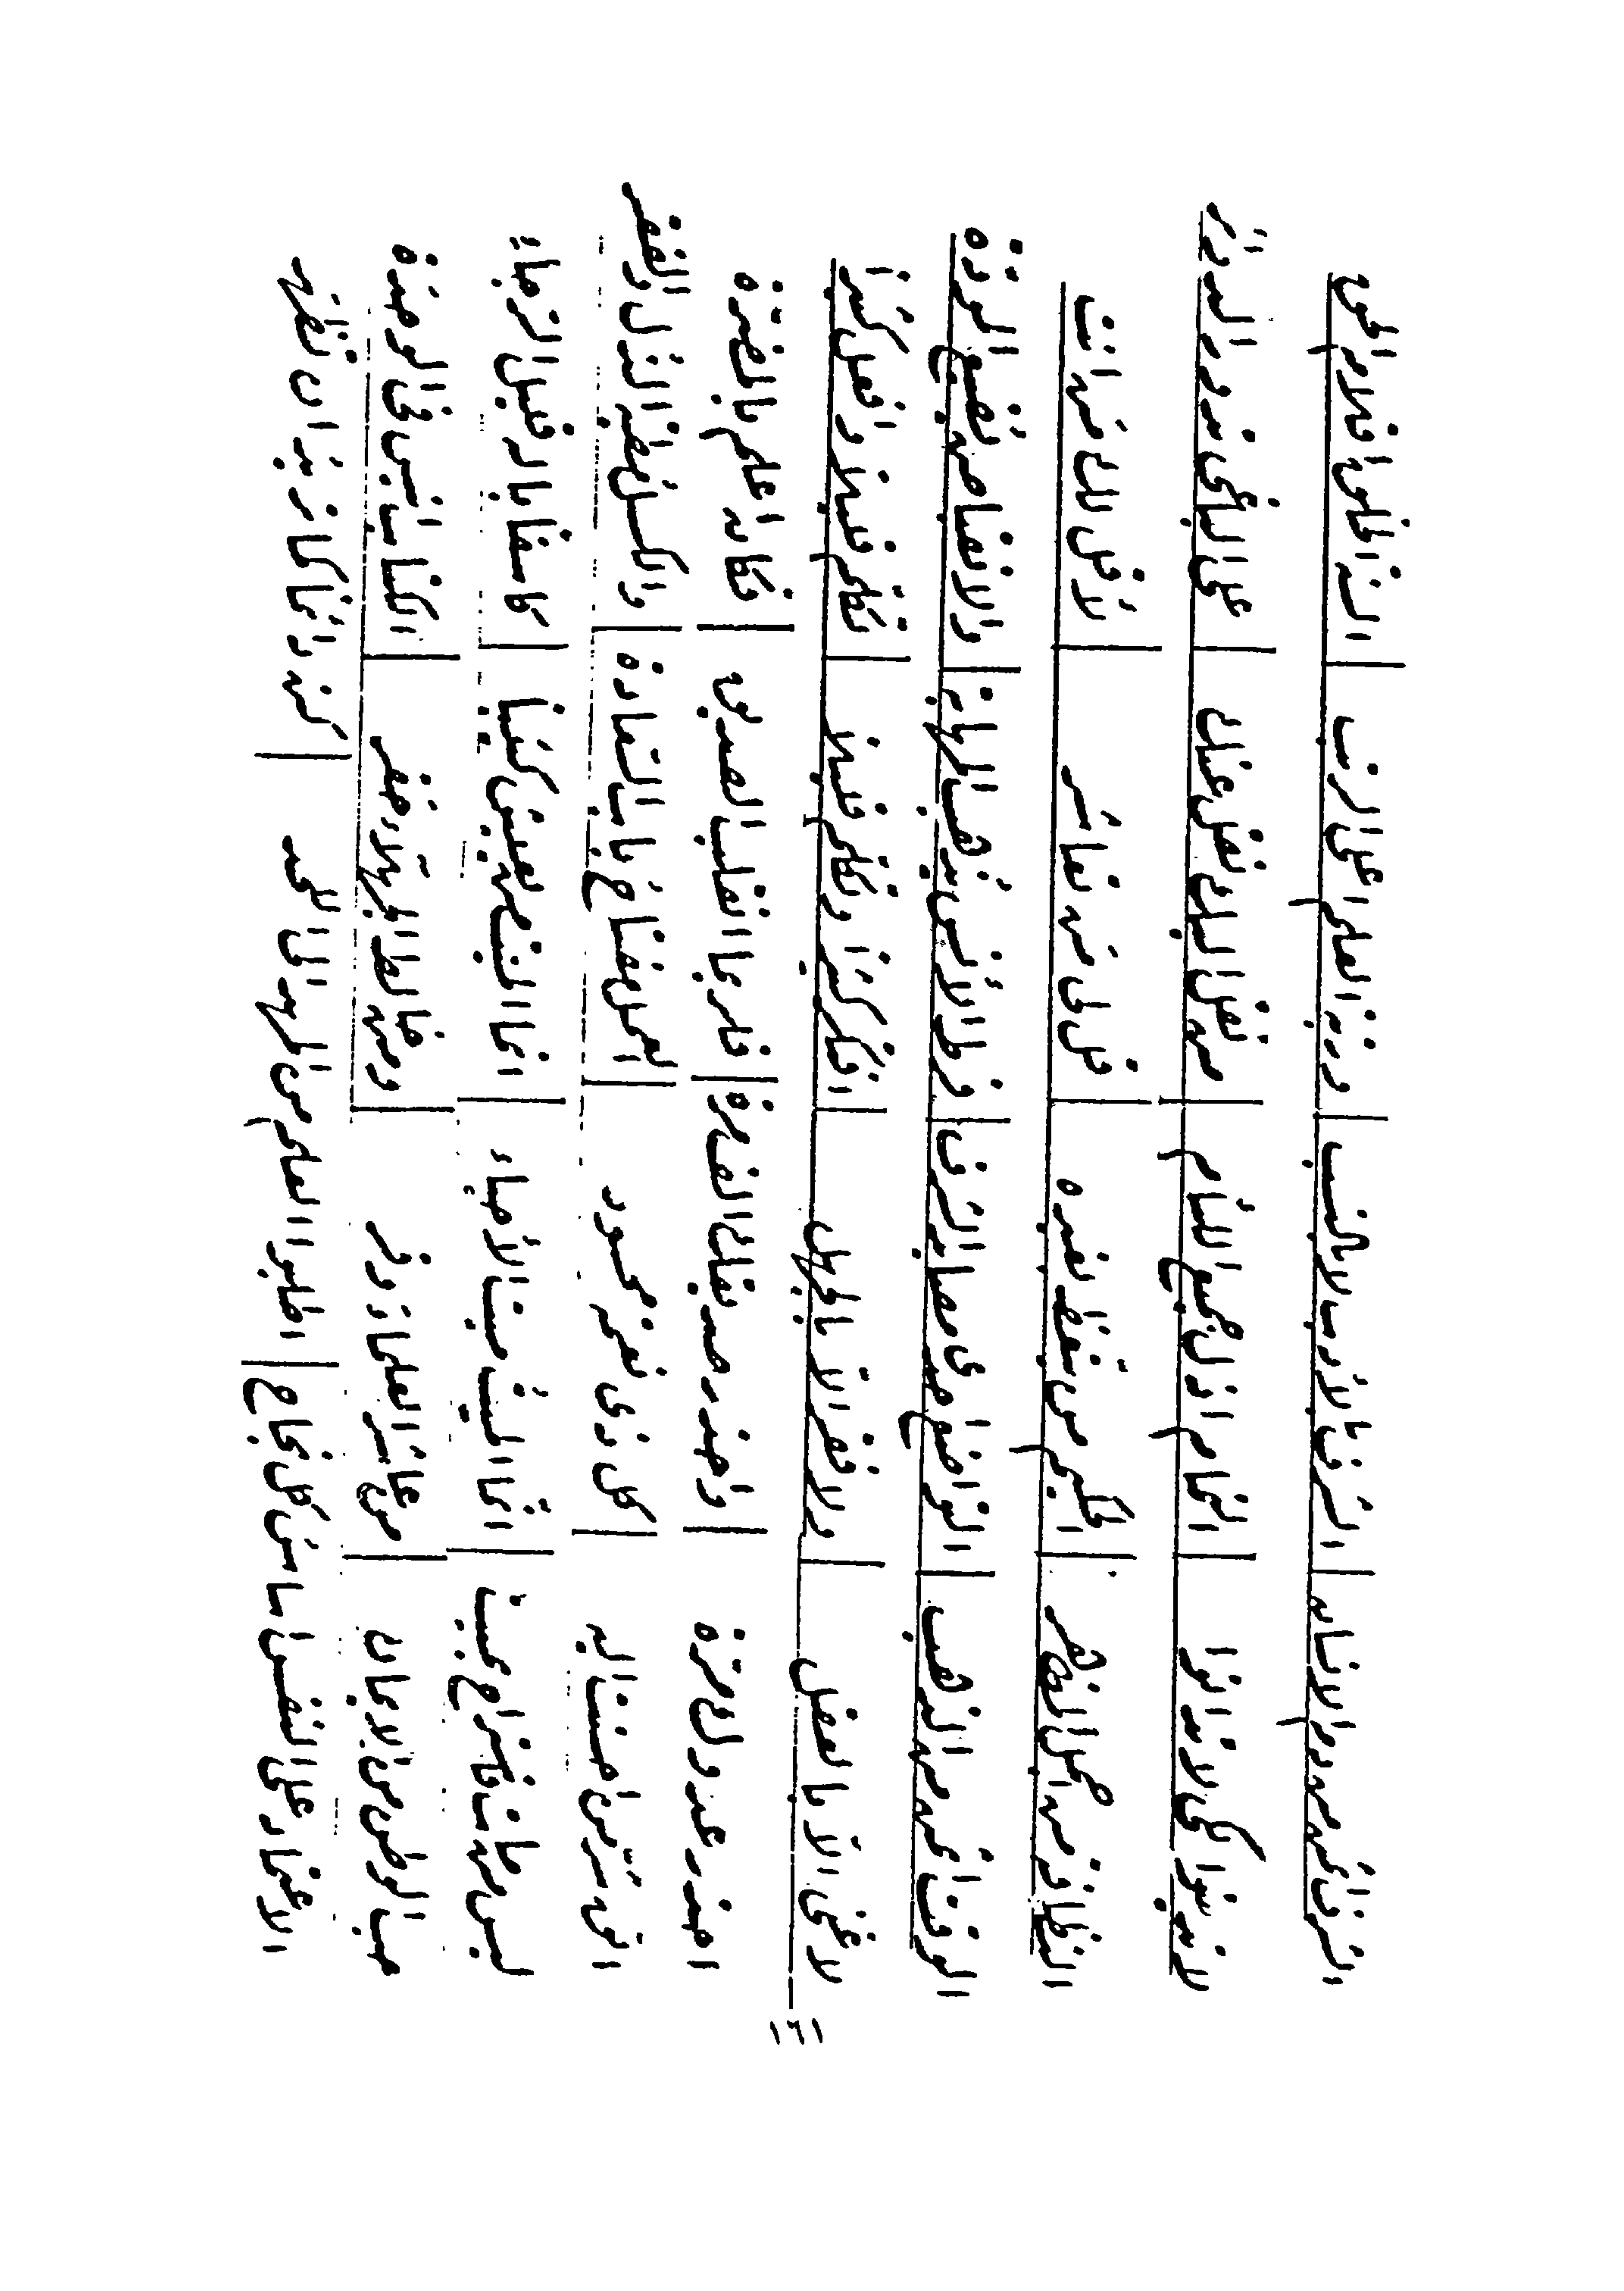 الشرف الانسان | الشرف بالأدب لا بالنسب | ورتبة العلم اعلى الرتب | السنة الخلق اقلام الحق
لا تدينوا لكي لا تدانوا | النمام اذل جميع اللئام | من نقل اليك نقل عنك | على الباغي تدور الدوائر
النظافة من اكمل المظهر | الحكيم من يتعظ بغيره | قل لي من تعاشر | لأقل لك من انت
الوقت أثمن من الذهب | التواضع احدى مصايد الشرف | فرط الأنس يذهب المهابة | والانقباض يضيع المودة
لا غنى الا بالعقل | ولا فقر الا بالجهل | افتكر كثيرا وتكلم قليلا | تكلم قليلا وافعل كثيرا
احذر عدوك مرة | واحذر صديقك الف مرة | فلربما انقلب الصديق | فكان اعلم بالمضرة
اتق شر من احسنت اليه | كل ذي نعمة محسود | العمل مفتاح باب السعادة | والكسل مطية الذل والفقر
ليس من مات فاستراح بميت | انما الميت ميت الأحياء | انما الميت من يعيش كئيبا | كاسفا باله قليل الرجاء
حب الوطن من الايمان | من عاشر العلماء وقر | ومن خالط الجهلاء حقر | الكتاب انيس في الوحدة
الاعتماد على النفس اساس كل نجاح | اطلبوا العلم من المهد الى اللحد | كن دائما كما تريد ان تظهر